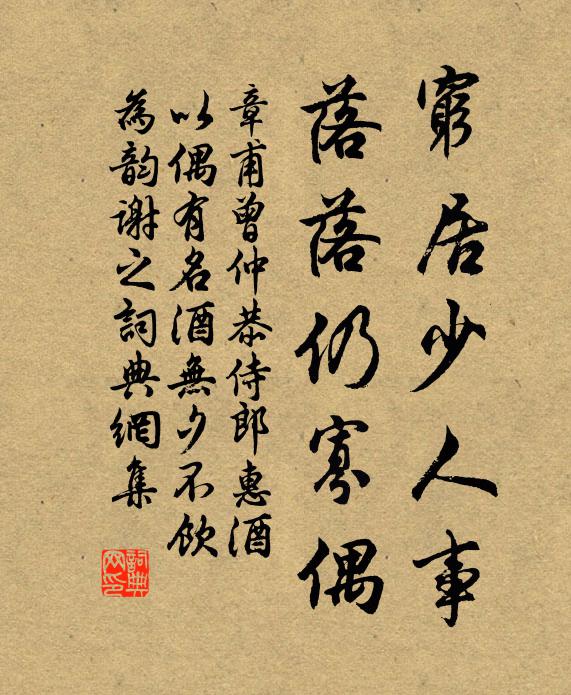 窮居少人事
落落仍寡偶
章甫曾仲恭侍郎惠酒
以偶有名酒無夕不飲
為韵謝之詞典網集
詞典网印